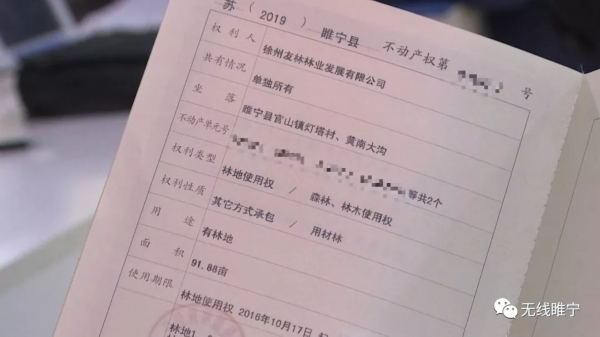 苏（2019）睢宁县 不动产权第 号
权利人 徐州友林林业发展有限公司
共有情况 单独所有
坐落 睢宁县官山镇灯塔村、黄南大沟
不动产单元号 等共2个
权利类型 林地使用权 / 森林、林木使用权
权利性质 其它方式承包 / 用材林
用途 有林地
面积 91.88亩
使用期限 林地使用权 2016年10月17日 起
林地1
无线睢宁